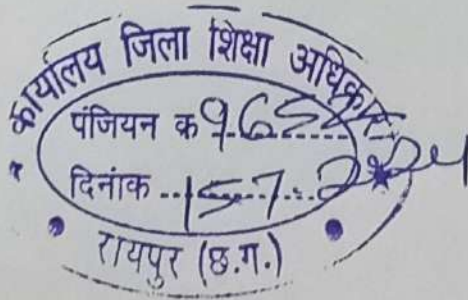 कार्यालय जिला शिक्षा अधिकारी
पंजियन क
दिनांक 15-7-2024
रायपुर (छ.ग.)